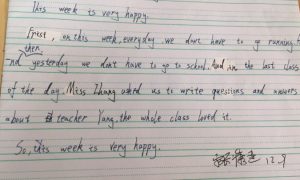 This week is very happy.
Frist, on this week, everyday we don't have to go running.
then
And yesterday we don't have to go to school. And in the last class
of the day, Miss Zhang asked us to write questions and answers
about teacher Yang, the whole class loved it.
So, this week is very happy.
12.9